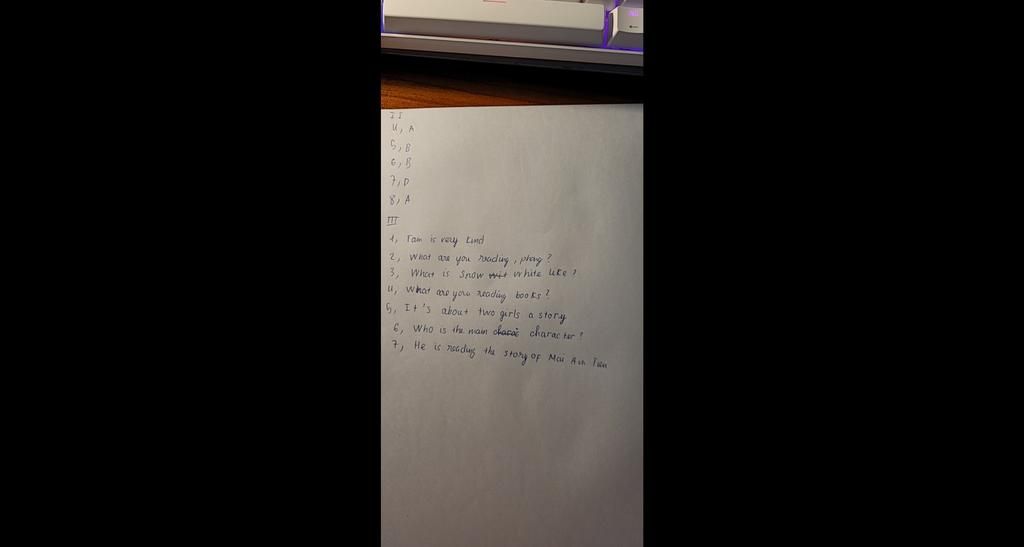 II
4, A
5, B
6, B
7, D
8, A
III
1, Tam is very kind
2, What are you reading, phong?
3, What is snow white like?
4, What are you reading books?
5, It's about two girls a story
6, Who is the main character?
7, He is reading the story of Mai An Tiem